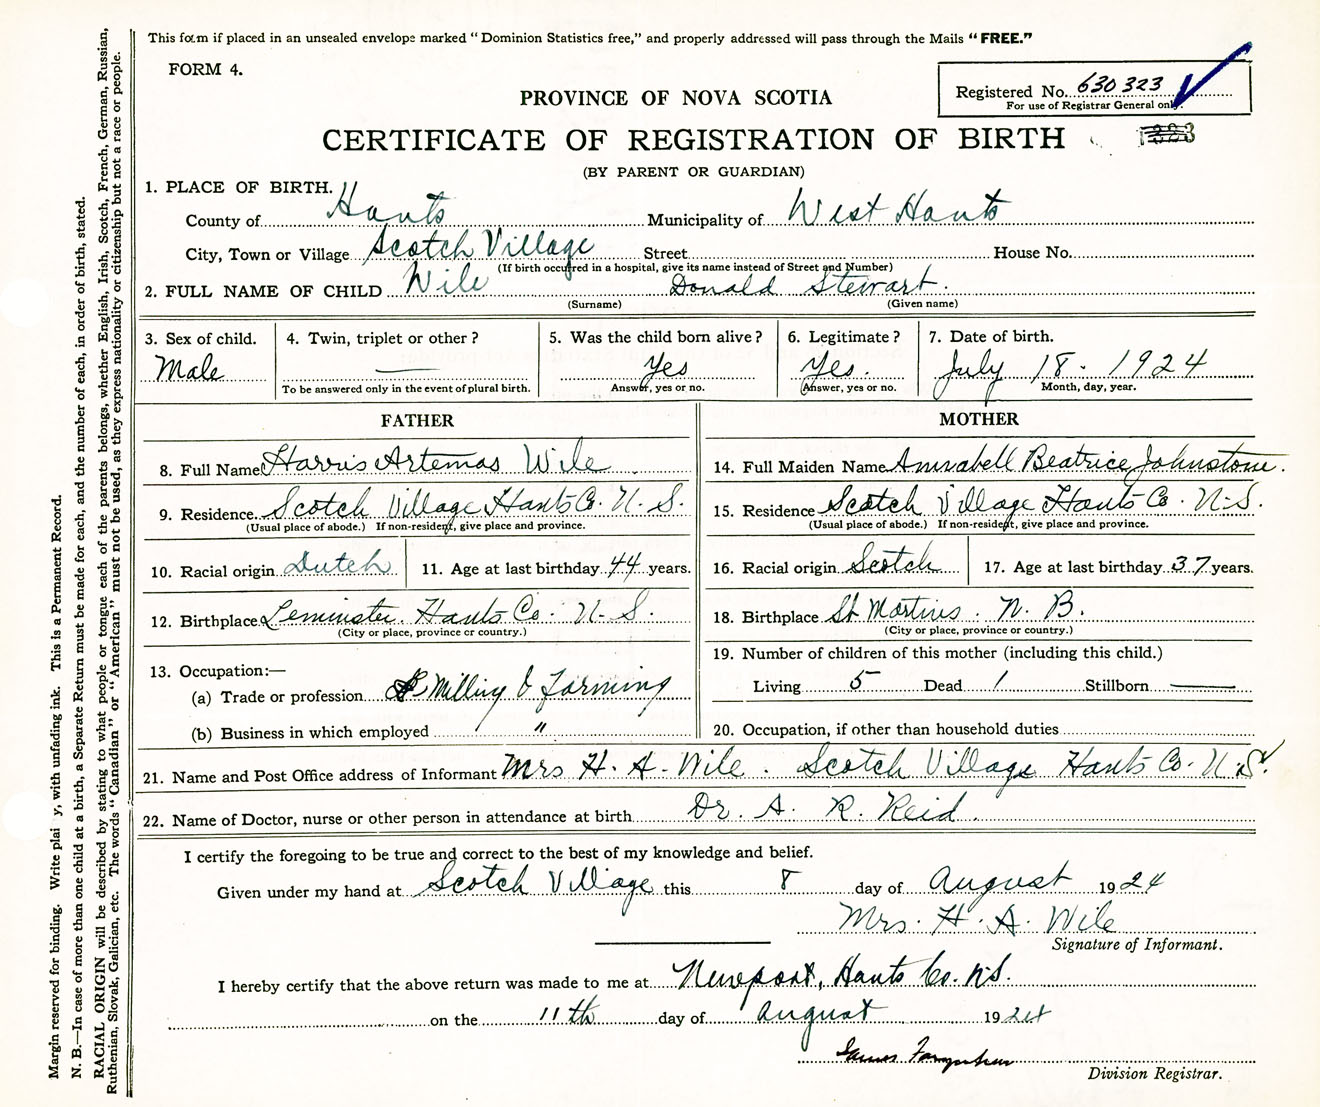 This form if placed in an unsealed envelope marked "Dominion Statistics free," and properly addressed will pass through the Mails "FREE."
FORM 4.
Registered No. 630323
For use of Registrar General only.
PROVINCE OF NOVA SCOTIA
CERTIFICATE OF REGISTRATION OF BIRTH
(BY PARENT OR GUARDIAN)
1. PLACE OF BIRTH.
County of Hants Municipality of West Hants
City, Town or Village Scotch Village Street House No.
(If birth occurred in a hospital, give its name instead of Street and Number)
2. FULL NAME OF CHILD Wile Donald Stewart.
(Surname) (Given name)
3. Sex of child. 4. Twin, triplet or other? 5. Was the child born alive? 6. Legitimate? 7. Date of birth.
Male — Yes Yes. July 18. 1924
To be answered only in the event of plural birth. Answer, yes or no. Answer, yes or no. Month, day, year.
FATHER MOTHER
8. Full Name Harris Artemas Wile 14. Full Maiden Name Annabell Beatrice Johnstone.
9. Residence Scotch Village Hants Co. N. S. 15. Residence Scotch Village Hants Co N.S.
(Usual place of abode.) If non-resident, give place and province. (Usual place of abode.) If non-resident, give place and province.
10. Racial origin Dutch 11. Age at last birthday 44 years. 16. Racial origin Scotch 17. Age at last birthday 37 years.
12. Birthplace Leminster. Hants Co. N. S. 18. Birthplace St Martins. N. B.
(City or place, province or country.) (City or place, province or country.)
13. Occupation:— 19. Number of children of this mother (including this child.)
(a) Trade or profession Milling & Farming Living 5 Dead 1 Stillborn —
(b) Business in which employed " 20. Occupation, if other than household duties
21. Name and Post Office address of Informant Mrs H. A. Wile. Scotch Village Hants Co. N.S.
22. Name of Doctor, nurse or other person in attendance at birth Dr. A. R. Reid.
I certify the foregoing to be true and correct to the best of my knowledge and belief.
Given under my hand at Scotch Village this 8 day of August 1924
Mrs. H. A. Wile
Signature of Informant.
I hereby certify that the above return was made to me at Newport, Hants Co. N.S.
on the 11th day of August 1924
James
Division Registrar.
Margin reserved for binding. Write plai y, with unfading ink. This is a Permanent Record.
N. B.—In case of more than one child at a birth, a Separate Return must be made for each, and the number of each, in order of birth, stated.
RACIAL ORIGIN will be described by stating to what people or tongue each of the parents belongs, whether English, Irish, Scotch, French, German, Russian,
Ruthenian, Slovak, Galician, etc. The words "Canadian" or "American" must not be used, as they express nationality or citizenship but not a race or people.